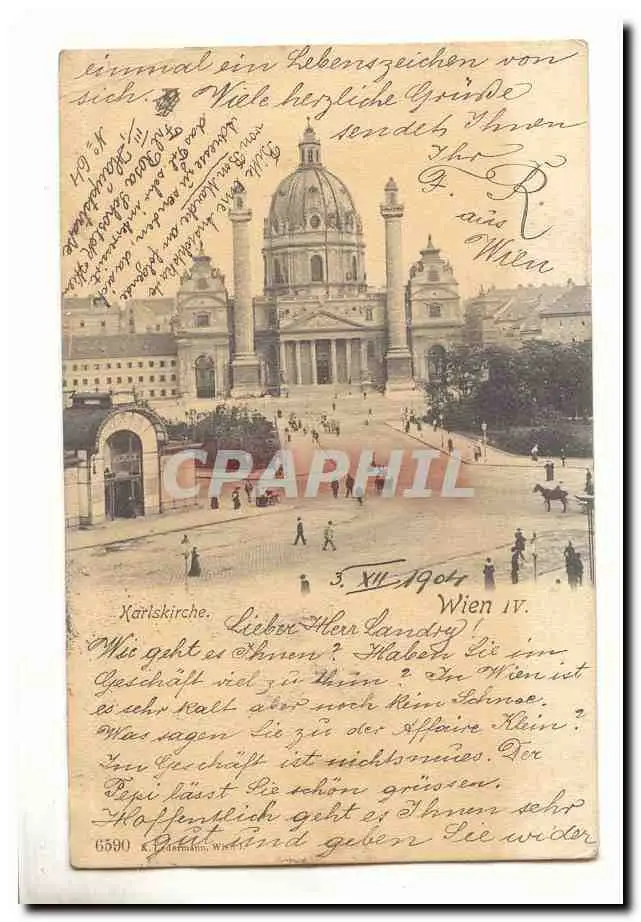 3. XII 1904
Karlskirche.
Wien IV.
Lieber Herr Landry!
Wie geht es Ihnen? Haben Sie im
Geschäft viel zu thun? In Wien ist
es sehr kalt aber noch kein Schnee.
Was sagen Sie zu der Affaire Klein?
Im Geschäft ist nichts neues. Der
Pepi lässt Sie schön grüssen.
Hoffentlich geht es Ihnen sehr
gut und geben Sie wider
einmal ein Lebenszeichen von
sich. Viele herzliche Grüße
sendet Ihnen
Ihr
F. R.
aus
Wien
Bitte
von
an folgende
Adresse zu senden, da sich
das Frl. sehr
Frl. Rosa
III. Hauptstraße
N= 64
6590
Wien I.
CPAPHIL